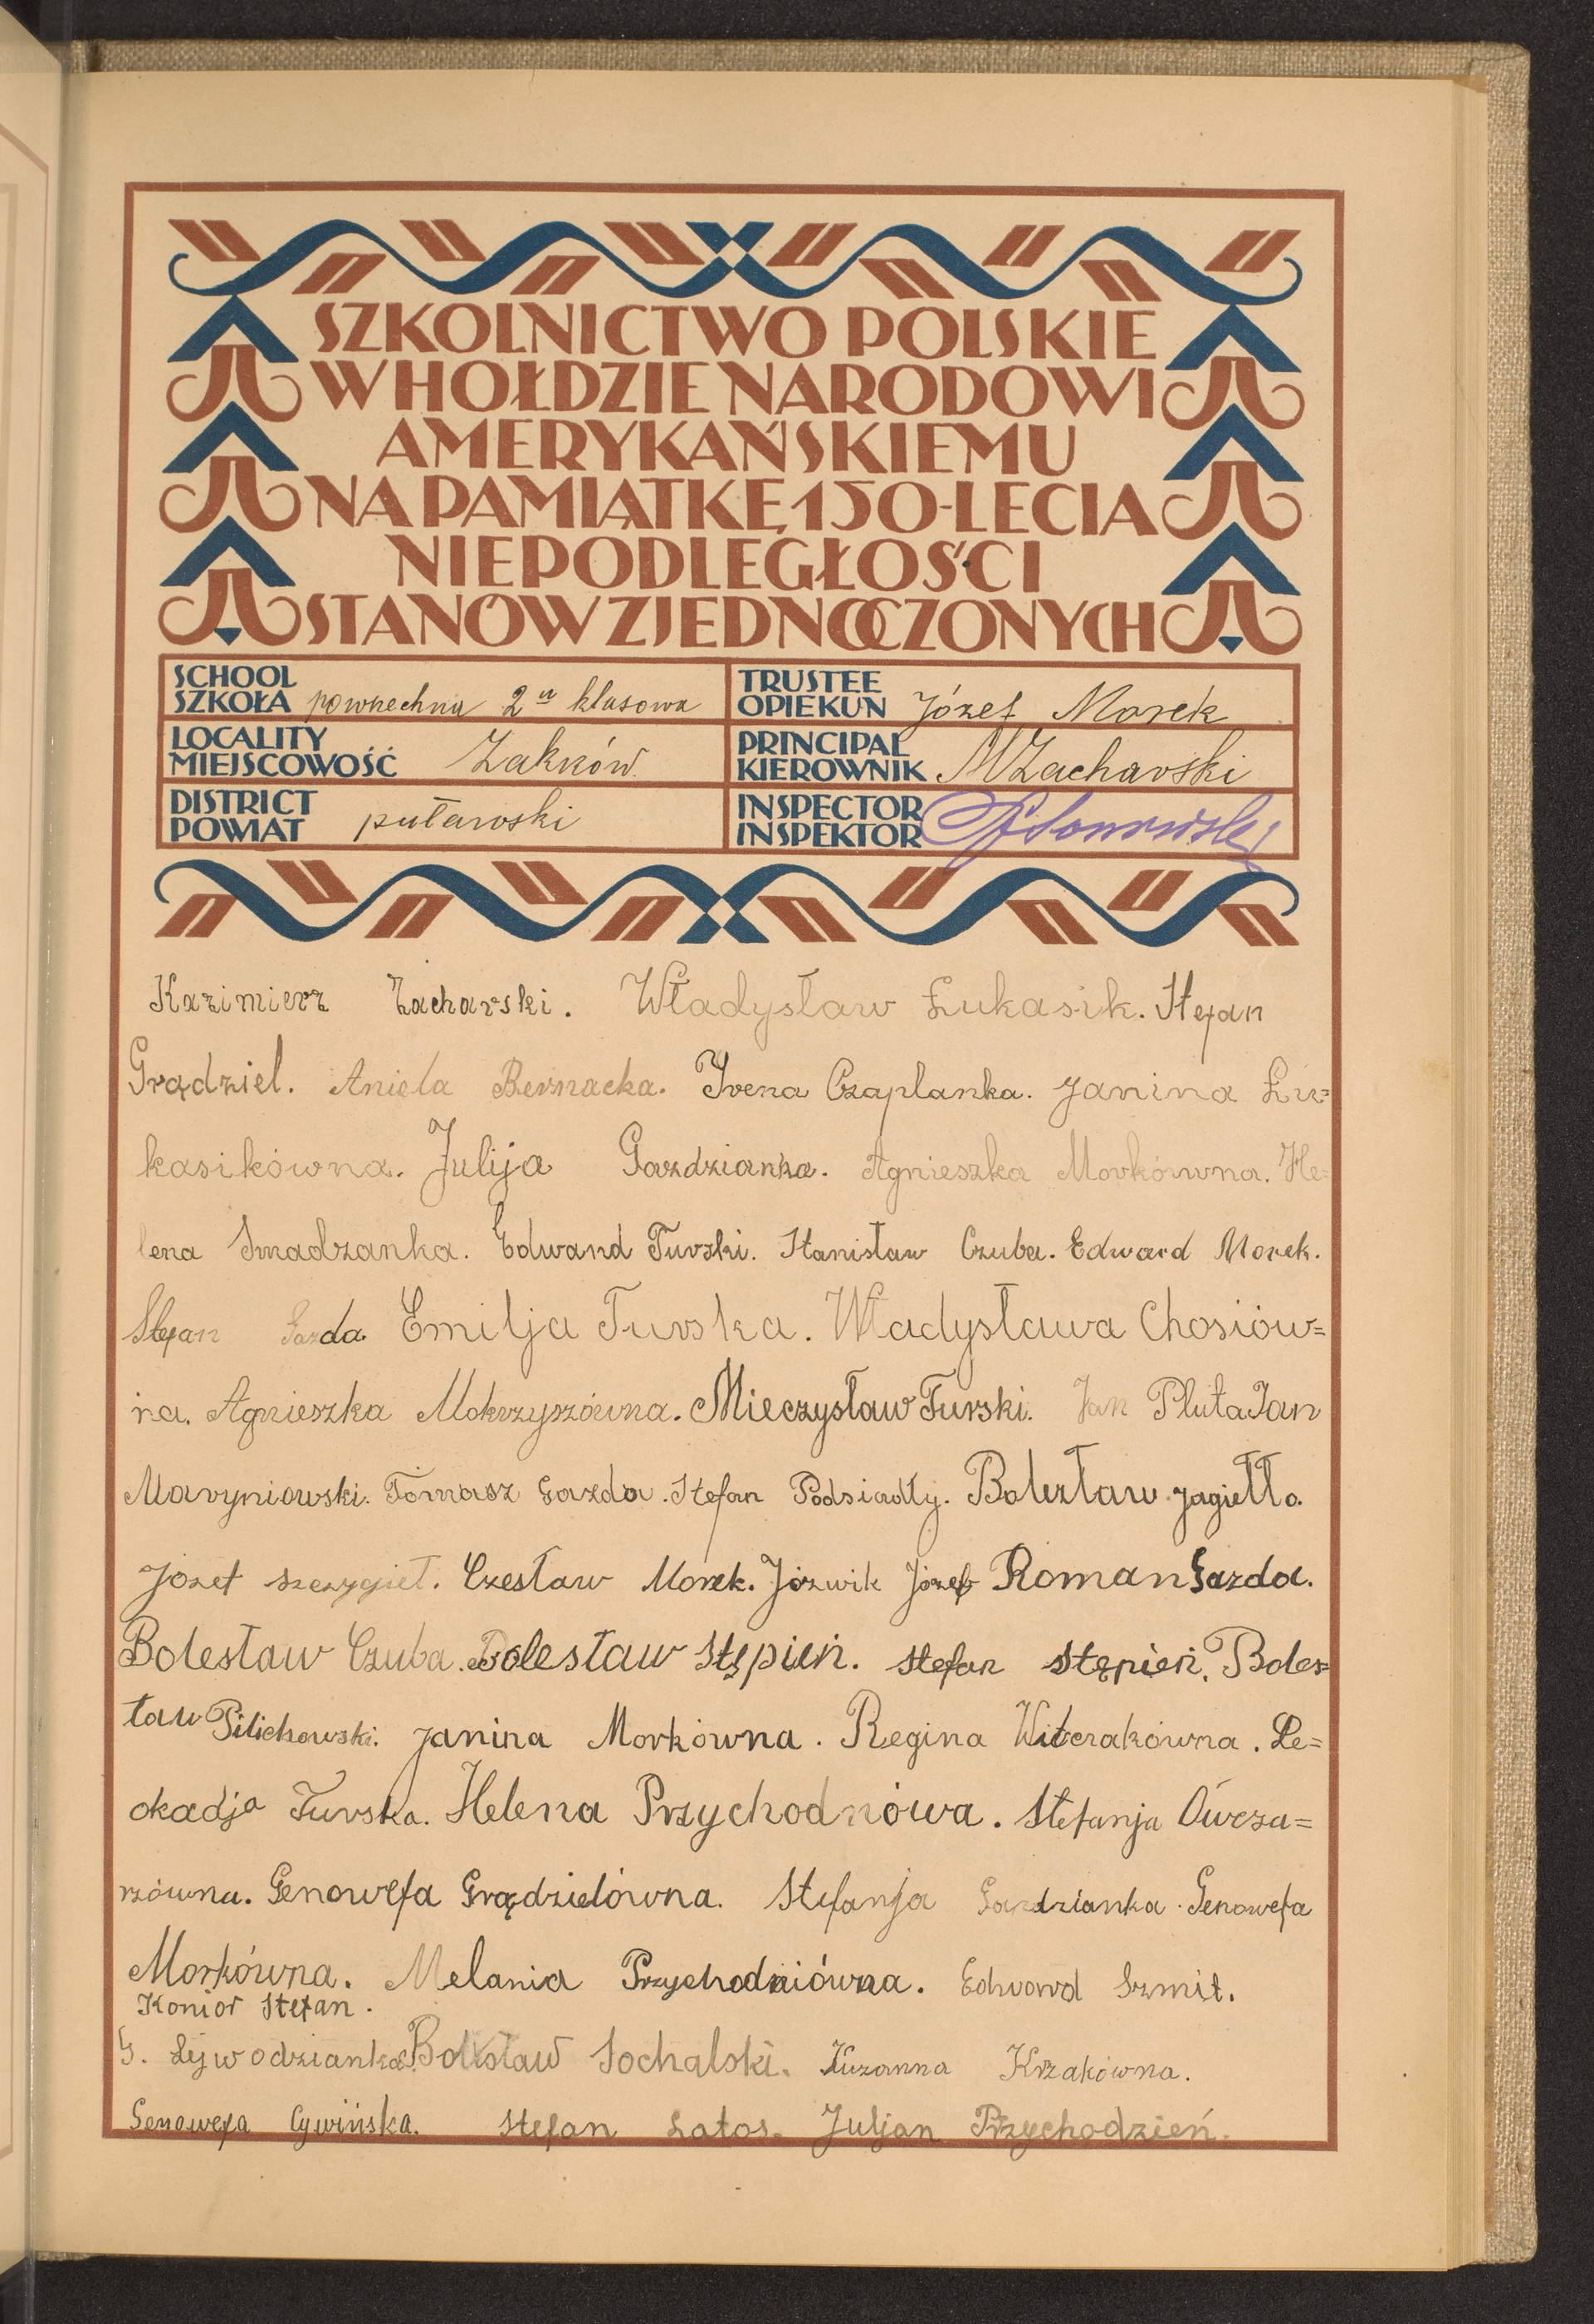 SZKOLNICTWO POLSKIE
W HOŁDZIE NARODOWI
AMERYKAŃSKIEMU
NA PAMIĄTKĘ 150-LECIA
NIEPODLEGŁOŚCI
STANÓW ZJEDNOCZONYCH
SCHOOL
SZKOŁA powszechna 2 klasowa
TRUSTEE
OPIEKUN Józef Morek
LOCALITY
MIEJSCOWOŚĆ Żakków
PRINCIPAL
KIEROWNIK MZacharski
DISTRICT
POWIAT puławski
INSPECTOR
INSPEKTOR
Kazimierz Zacharski. Władysław Łukasik. Stefan
Grądziel. Aniela Bernacka. Irena Czaplanka. Janina Łu=
kasikówna. Julija Gazdzianka. Agnieszka Morkówna. He=
lena Smadzanka. Edward Turski. Stanisław Czuba. Edward Morek.
Stefan Gazda Emilja Turska. Władysława Chosiów=
na. Agnieszka Mokrzyszówna. Mieczysław Turski. Jan Pluta Jan
Maryniowski. Tomasz Gazda. Stefan Podsiadły. Bolesław Jagiełło.
Józef Szczygieł. Czesław Morek. Józwik Józef Roman Gazda.
Bolesław Czuba. Bolesław Stępień. Stefan Stępień. Boles=
ław Pilichowski. Janina Morkówna. Regina Witczakówna. Le=
okadja Turska. Helena Przychodniówa. Stefanja Owcza=
rzówna. Genowefa Grądzielówna. Stefanja Gazdzianka. Genowefa
Morkówna. Melania Przychodniówna. Edward Szmit.
Konior Stefan.
G. Lejwodzianka. Bolesław Sochalski. Zuzanna Krzakówna.
Genowefa Cywińska. Stefan Latos. Juljan Przychodzień.